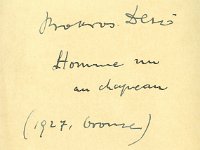 Bokros Dezső
Homme nu
au chapeau
(1927, bronze)